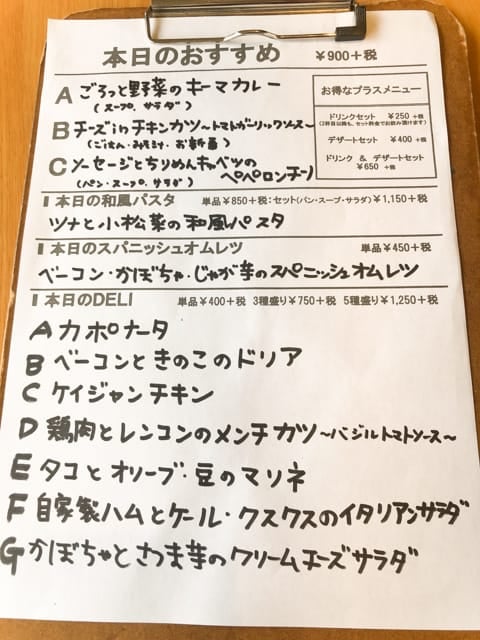 本日のおすすめ ¥900+税
A ごろっと野菜のキーマカレー
(スープ、サラダ)
B チーズinチキンカツ〜トマトガーリックソース〜
(ごはん・みそ汁・お新香)
C ソーセージとちりめんキャベツの
ペペロンチーノ
(パン・スープ、サラダ)
お得なプラスメニュー
ドリンクセット ¥250 +税
(2杯目以降も、セット料金でお飲み頂けます)
デザートセット ¥400 +税
ドリンク & デザートセット
¥650 +税
本日の和風パスタ 単品¥850+税:セット(パン・スープ・サラダ)¥1,150+税
ツナと小松菜の和風パスタ
本日のスパニッシュオムレツ 単品¥450+税
ベーコン・かぼちゃ・じゃが芋のスパニッシュオムレツ
本日のDELI 単品¥400+税 3種盛り¥750+税 5種盛り¥1,250+税
A カポナータ
B ベーコンときのこのドリア
C ケイジャンチキン
D 鶏肉とレンコンのメンチカツ〜バジルトマトソース〜
E タコとオリーブ・豆のマリネ
F 自家製ハムとケール・クスクスのイタリアンサラダ
G かぼちゃとさつま芋のクリームチーズサラダ